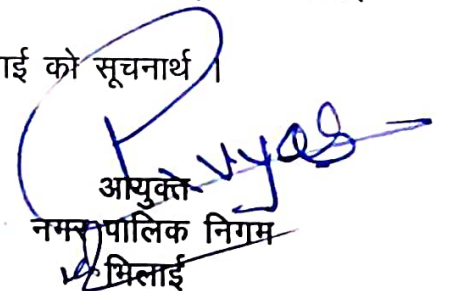 ाई को सूचनार्थ ।
आयुक्त
नगर पालिक निगम
भिलाई